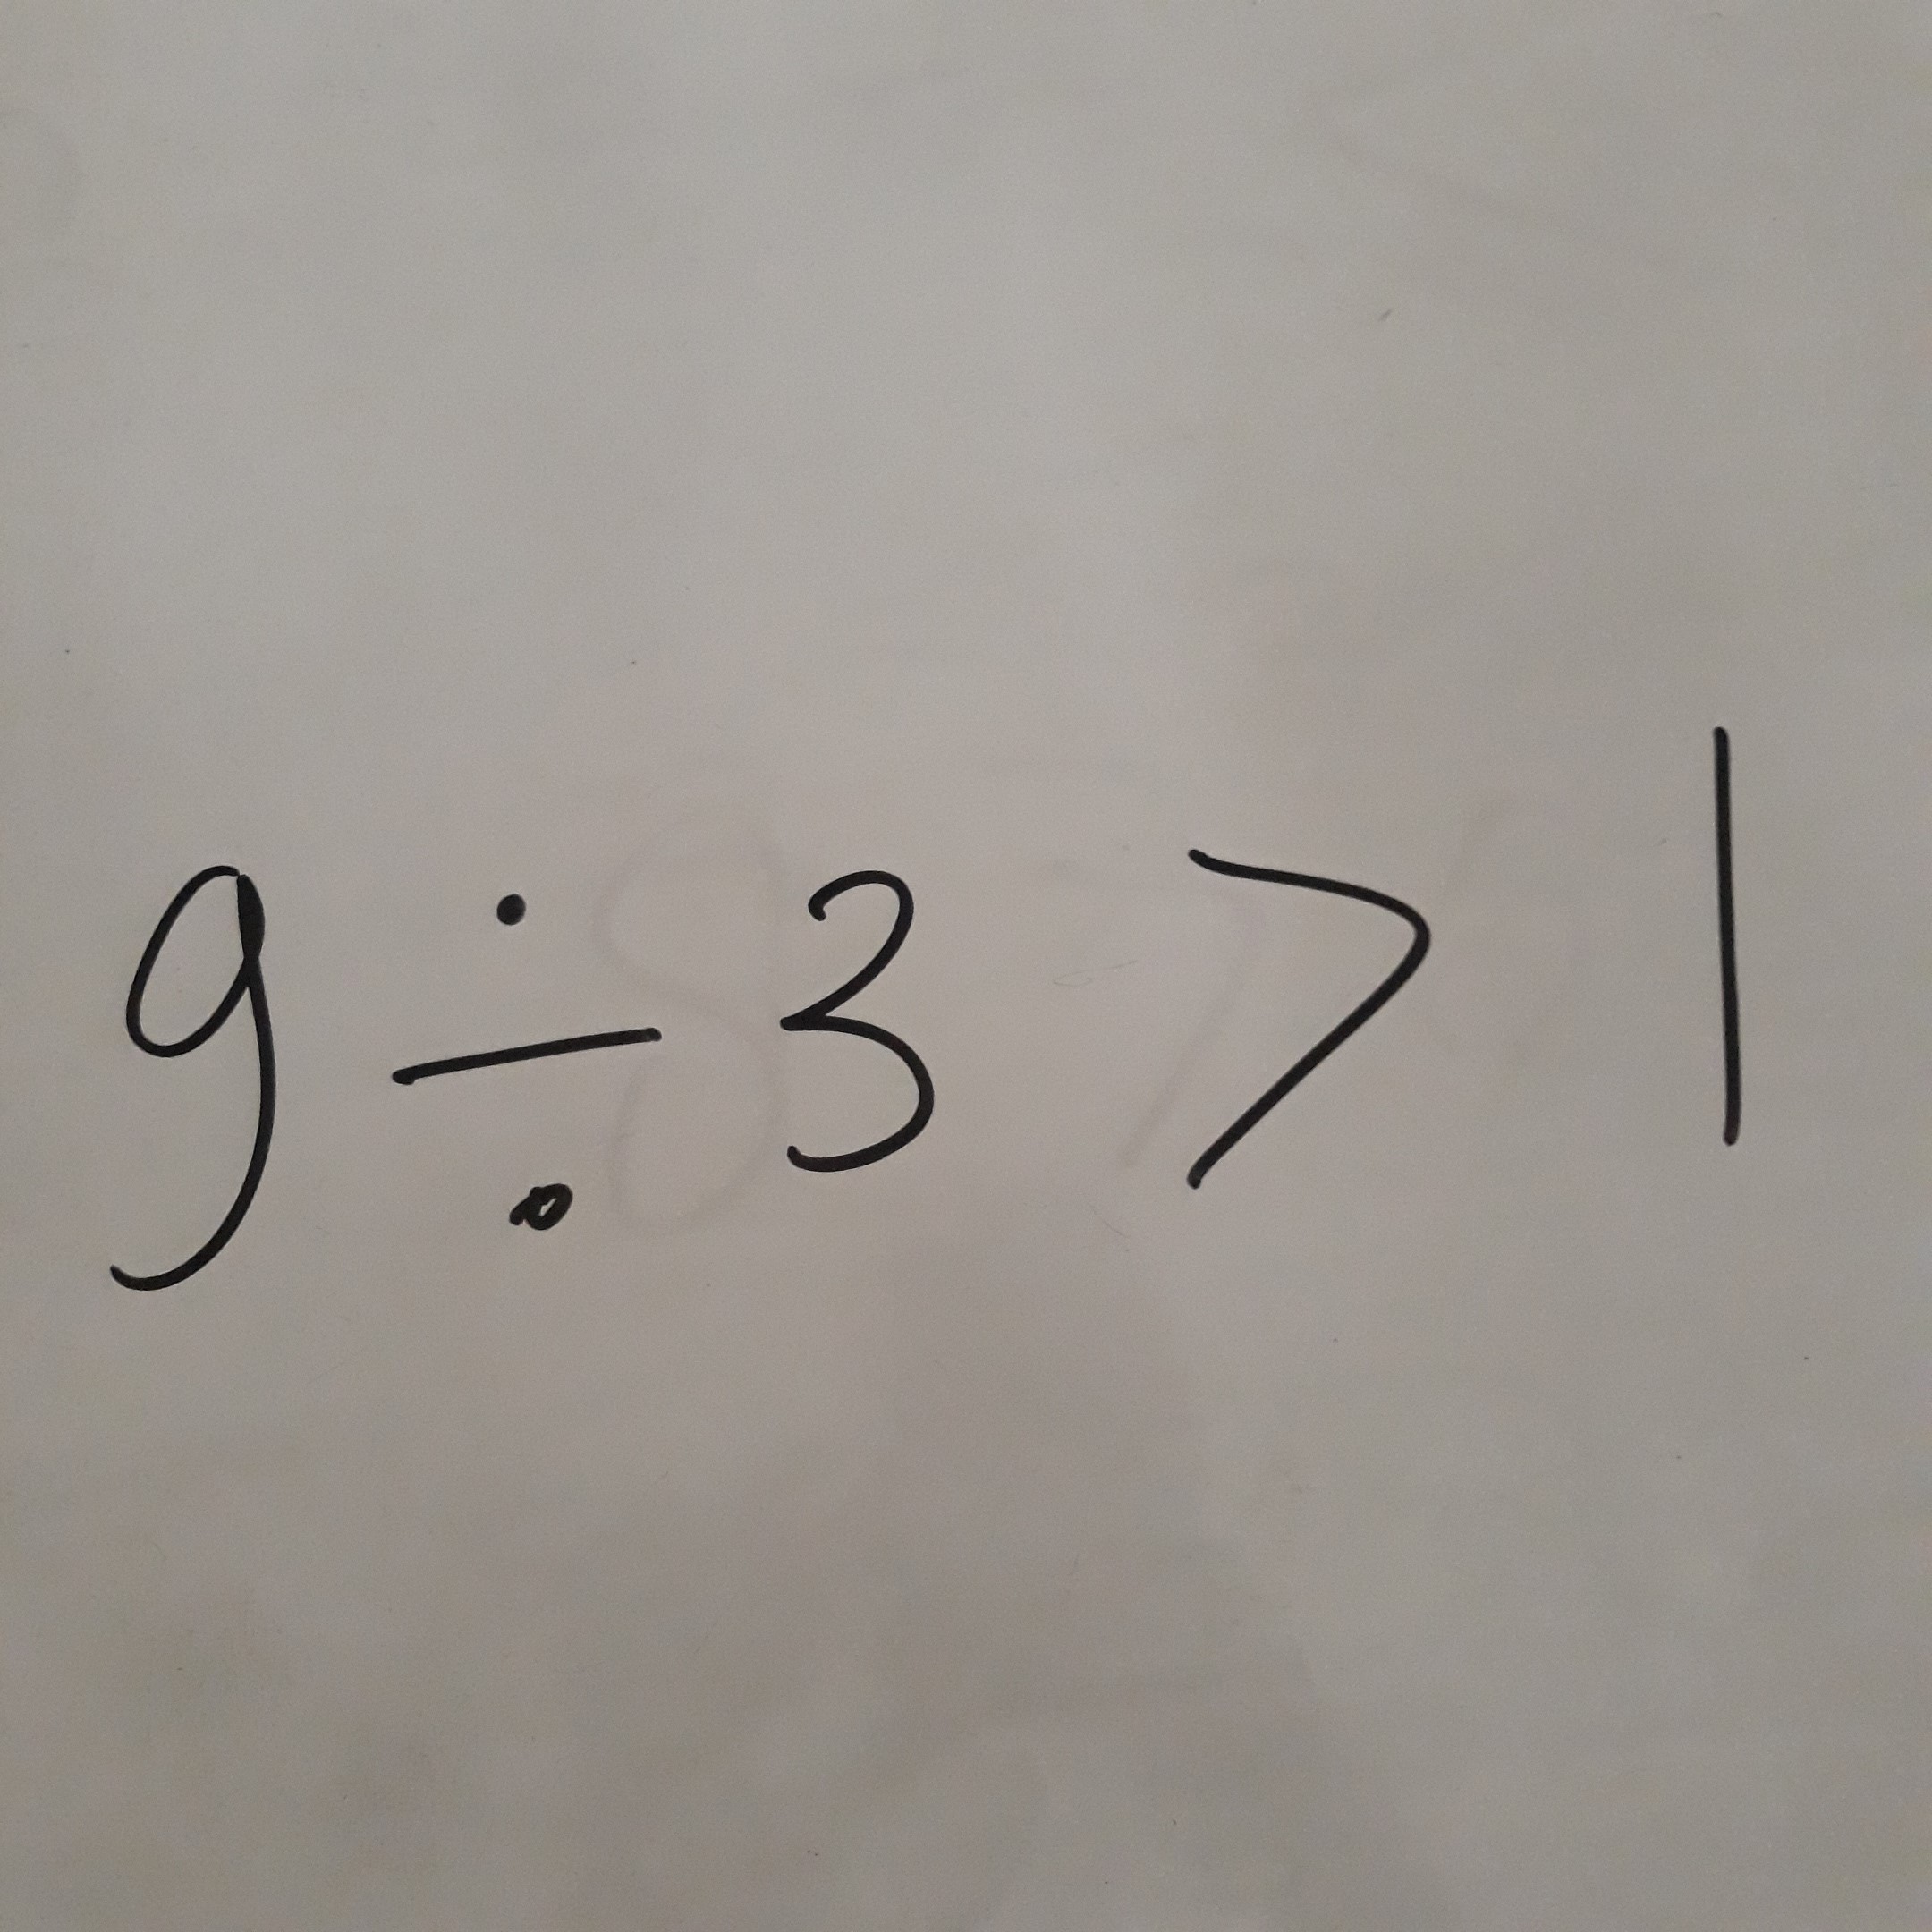 9 ÷ 3 > 1